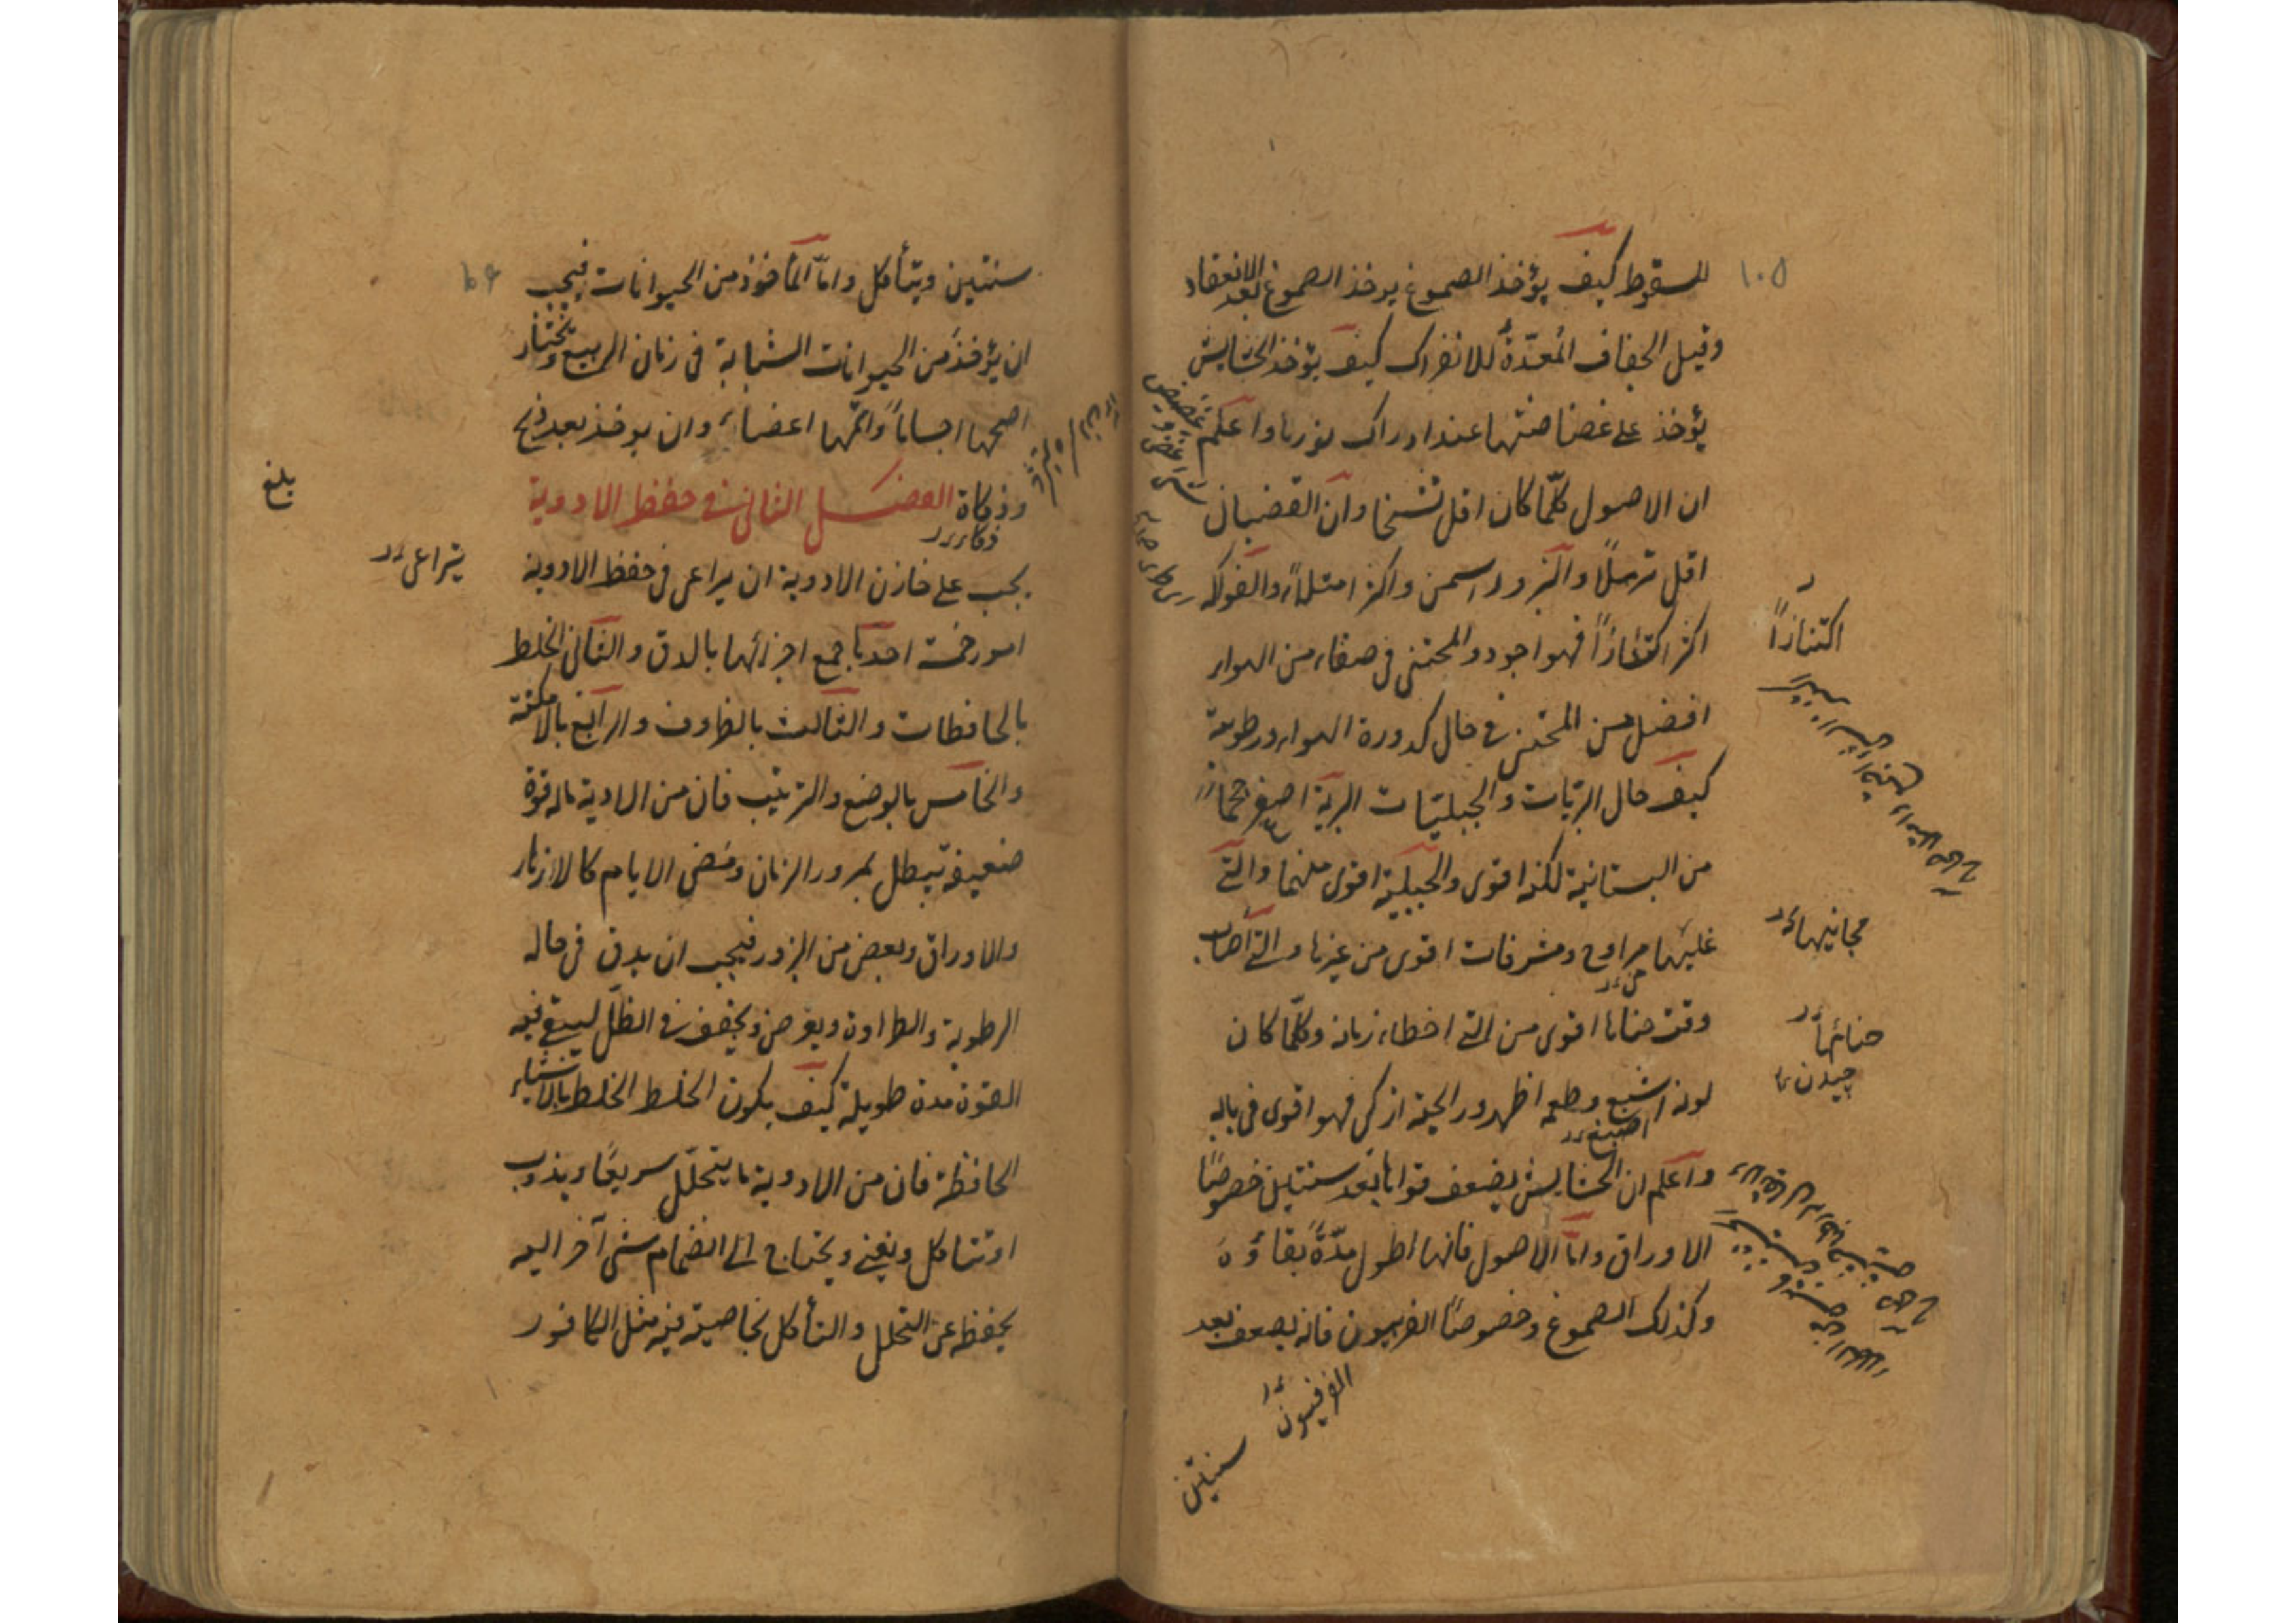 ١٠٥
للسقوط كيف يؤخذ الصموغ يوخذ الصموغ بعد الانعقاد
وقبل الجفاف المعدّة للانفراك كيف يؤخذ الحشايش
يؤخذ على غضاضتها عند ادراك بزرها واعلم
ان الاصول كلّما كان اقل تشنخا وان القضبان
اقل ترهلاً والبزور اسمن واكثر امتلاء والفواكه
اكثر اكتنازاً فهو اجود والمجتنى فى صفاء من الهواء
افضل من المجتنى فى حال كدورة الهواء ورطوبته
كيف حال البريّات والجبليّات البرية اصغر حجماً
من البستانية لكنه اقوى والجبلية اقوى منهما والتى
عليها مراوح ومشرفات اقوى من غيرها والتى اصاب
وقت جناها اقوى من التى اخطاء زمانه وكلّما كان
لونه اشبع وطعمه اظهر ورايحته ازكى فهو اقوى فى بابه
واعلم ان الحشايش يضعف قواها بعد سنتين خصوصًا
الاوراق وامّا الاصول فانها اطول مدّةً بقاؤه
وكذلك الصموغ وخصوصًا الفربيون فانه يضعف بعد
اكتنازاً
مجانيها
جنائها
چيدن
اصبغ
الفرفيون
سنتين
سنتين ويتأكل وامّا المأخوذ من الحيوانات فيجب
ان يؤخذ من الحيوانات الشابة فى زمان الربيع ويختار
اصحها اجساماً واتمّها اعضاء وان يوخذ بعد ذبح
وذكاة الفصل الثانى فى حفظ الادوية
ذكاء
يجب على خازن الادوية ان يراعى فى حفظ الادوية
امور خمسة احدها جمع اجزائها بالدق والثانى الخلط
بالحافظات والثالث بالظروف والرابع بالامكنة
والخامس بالوضع والترتيب فان من الادية ما له قوة
ضعيفة تبطل بمرور الزمان ومضى الايام كالازهار
والاوراق وبعض من البزور فيجب ان يدق فى حاله
الرطوبة والطراوة ويقرص ويجفف فى الظلّ ليبقى فيه
القوة مدة طويلة كيف يكون الخلط الخلط بالاشياء
الحافظة فان من الادوية ما يتحلّل سريعًا ويذوب
او تتأكل ويفنى ويحتاج الى انضمام شئ آخر اليه
يحفظه عن التحلل والتأكل بخاصية فيه مثل الكافور
بلغ
يراعى